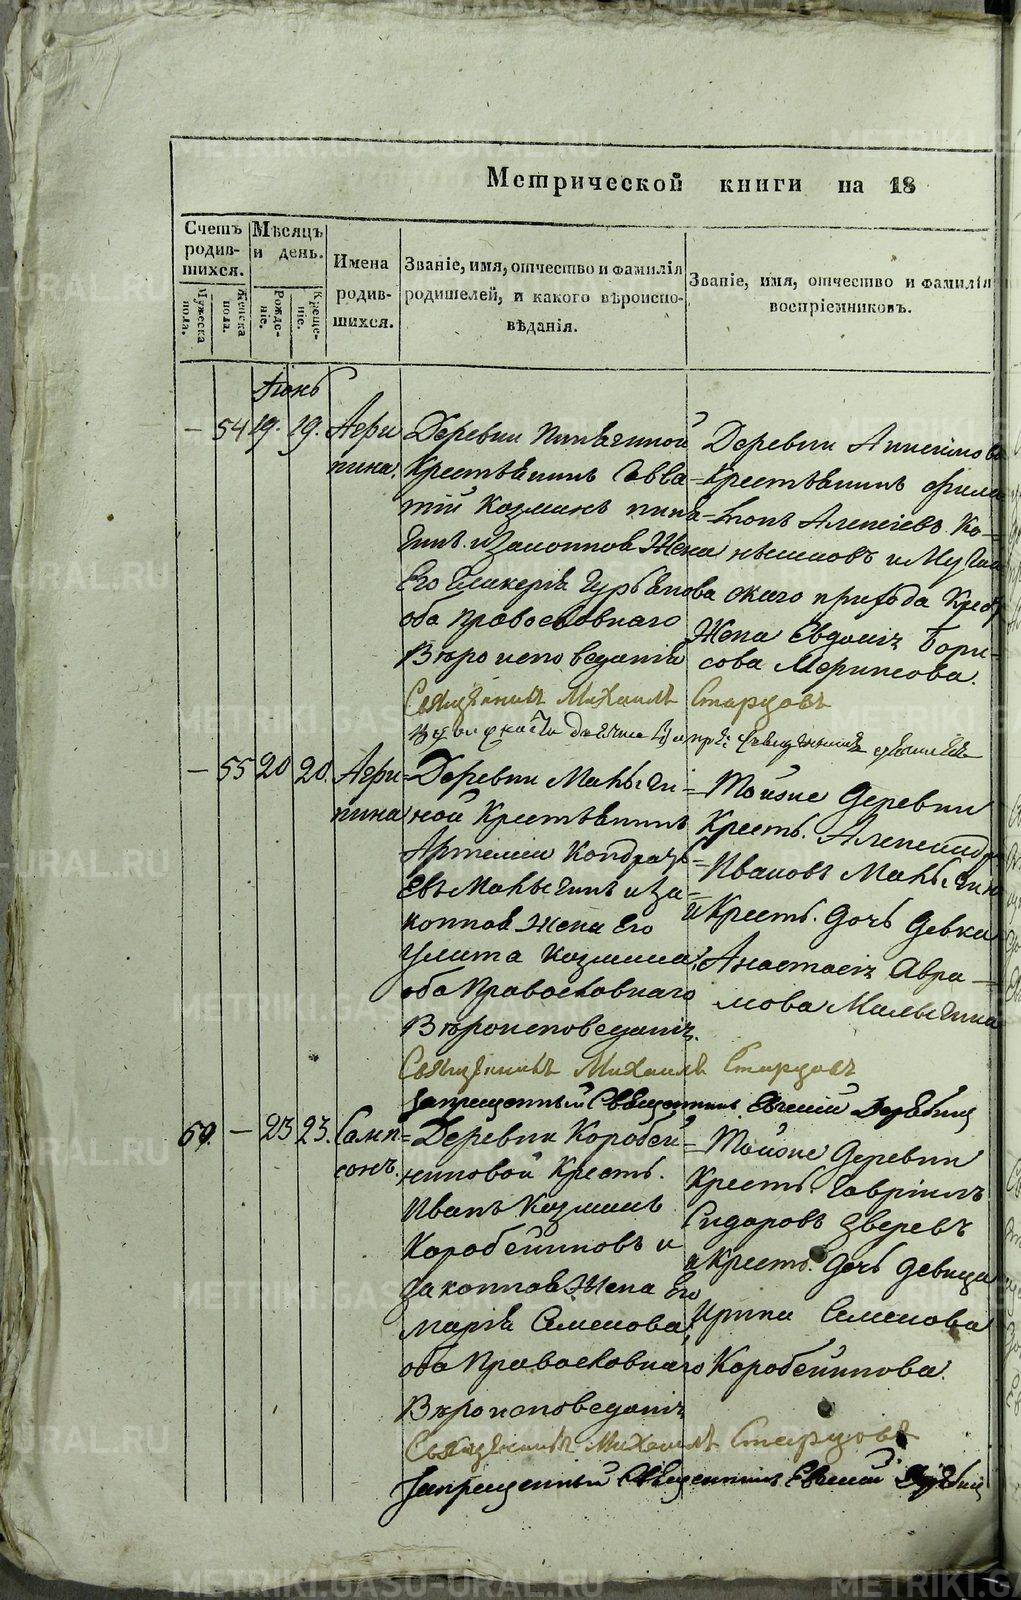 Метрической книги на 18
Счетъ родив-шихся.
Мужеска пола.
Женска пола.
Мѣсяцъ и день.
Рожде-ніе.
Креще-ніе.
Имена родив-шихся.
Званіе, имя, отчество и фамилія родителей, и какого вѣроиспо-вѣданія.
Званіе, имя, отчество и фамилія воспріемниковъ.
Іюнь
— 54 19. 19.
Агри
пина.
Деревни
Крестьянинъ Савва=
тій Козминъ
и законная Жена
Его Гликерія
оба православнаго
Вѣроисповеданія
Деревни
Крестьянинъ Фила
Алексіевъ Ко=
и
скаго прихода Крест
Жена Евдокія Бори=
сова
Священникъ Михаилъ Старцовъ
— 55 20 20.
Агри=
пина
Деревни Малыги=
ной Крестьянинъ
Артемій Кондрать=
евъ Малыгинъ и за=
конная жена Его
Улита Козмина,
оба Православнаго
Вѣроисповеданія.
Тойже деревни
Кресть. Александръ
Ивановъ Малыгинъ
и Кресть. дочь девка
Анастасія Авра=
мова Малыгина
Священникъ Михаилъ Старцовъ
Запрещенный Священникъ Евгений
60. — 23 23.
Самп=
сонъ.
Деревни Коробей=
никовой Кресть.
Иванъ Козминъ
Коробейниковъ и
законная Жена Его
Марія Семенова,
оба Православнаго
Вѣроисповеданія
Тойже деревни
Кресть. Гавріилъ
Сидаровъ Зверевъ
и Кресть. дочь девица
Ирина Семенова
Коробейникова.
Священникъ Михаилъ Старцовъ
Запрещенный Священникъ Евгений
METRIKI.GASU-URAL.RU